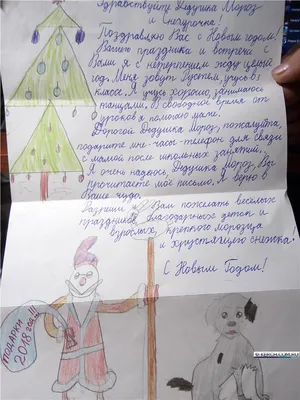 Здравствуйте Дедушка Мороз
и Снегурочка!
Поздравляю Вас с Новым годом!
Вашего праздника и встречи с
Вами я с нетерпением жду целый
год. Меня зовут Рустем, учусь в 1
классе. Я учусь хорошо, занимаюсь
танцами. В свободное время от
уроков я помогаю маме.
Дорогой Дедушка Мороз, пожалуйста,
подарите мне часы-телефон для связи
с мамой после школьных занятий.
Я очень надеюсь, Дедушка Мороз, Вы
прочитаете моё письмо. Я верю в
Ваше чудо.
Разреши Вам пожелать весёлых
праздников, благодарных детей и
взрослых, крепкого морозца
и хрустящего снежка.
С Новым Годом!
ПОДАРКИ
2018 год!!!
© KERCH.COM.RU